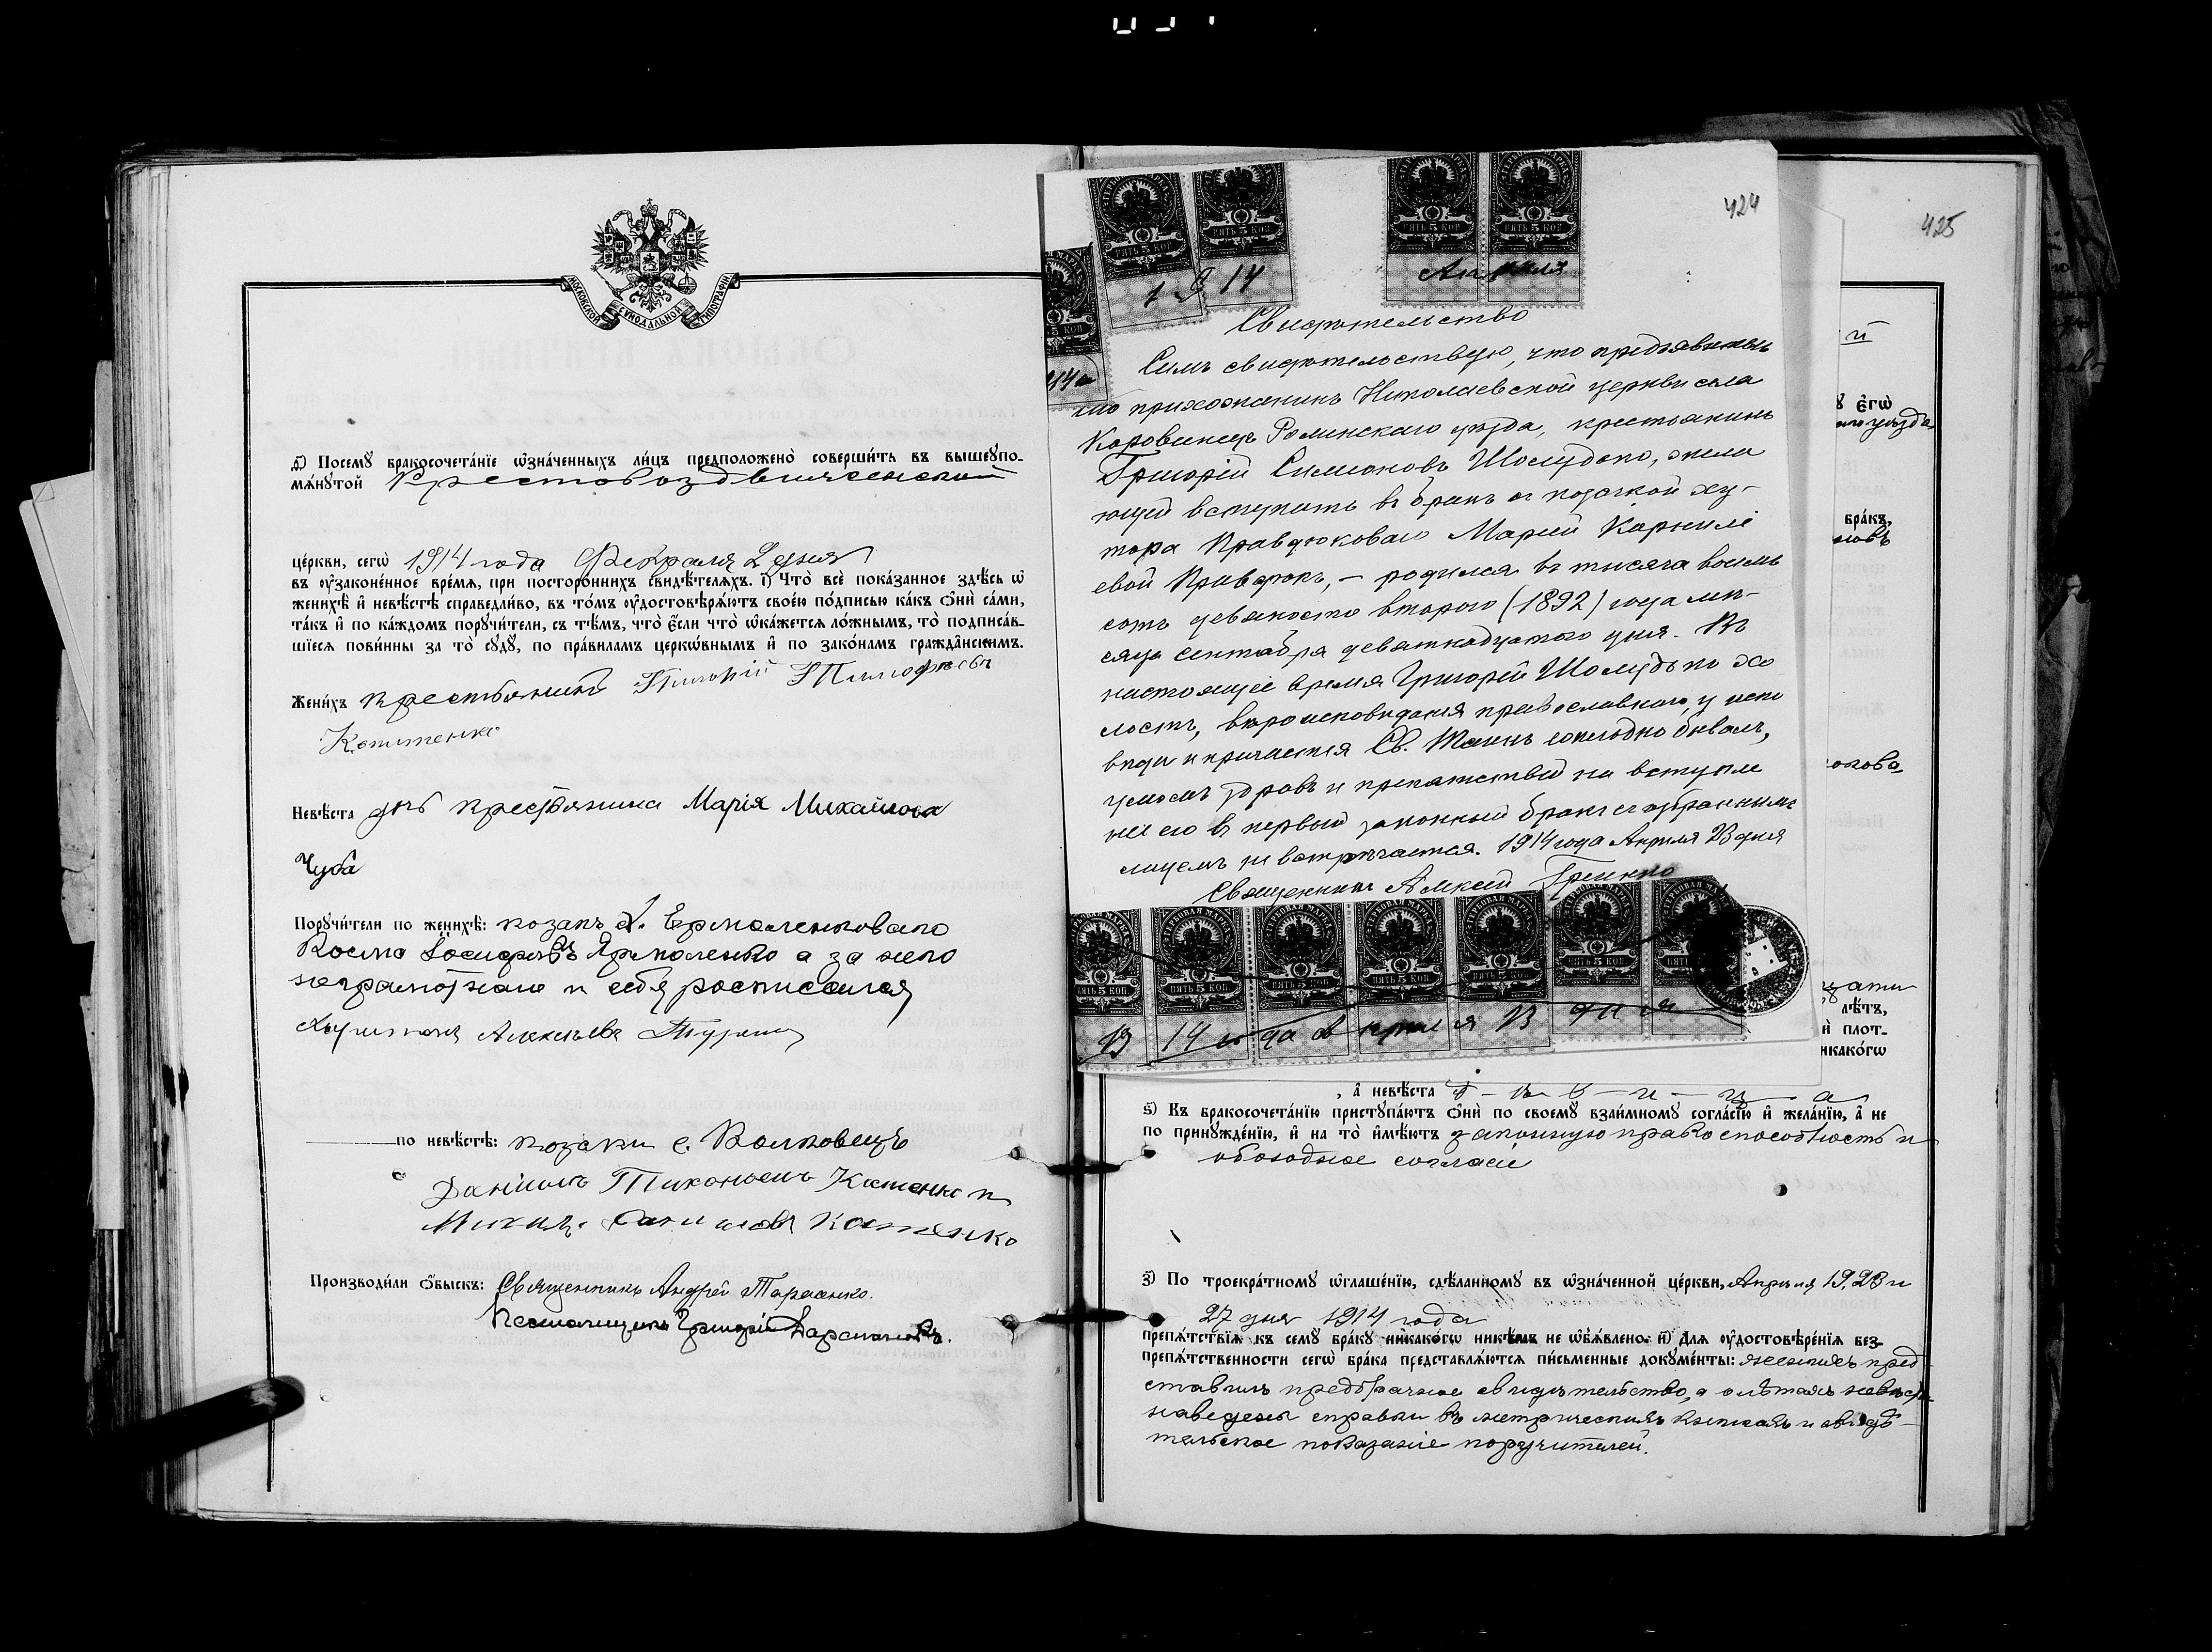 МОСКОВСКОЙ СѴНОДАЛЬНОЙ ТИПОГРАФІИ
д҃) Посемꙋ бракосочета́нїе ѡ҆зна́ченныхъ ли́цъ предположено̀ соверши́ть въ вышеꙋпо-
мѧ́нꙋтой Крестовоздвиженской
це́ркви, сегѡ̀ 1914 года Февраля 2 дня
въ ᲂу҆зако́ненное вре́мѧ, при посторо́ннихъ свидѣ́телѧхъ. і҃) Что̀ всѐ пока́занное здѣ́сь ѡ҆
женихѣ̀ и҆ невѣ́стѣ справедли́во, въ то́мъ ᲂу҆достовѣрѧ́ютъ свое́ю по́дписью ка́къ ѻ҆нѝ са́ми,
та́къ и҆ по ка́ждомъ порꙋчи́тели, съ тѣ́мъ, что̀ є҆́сли что̀ ѡ҆ка́жетсѧ ло́жнымъ, то̀ подписа́в-
шїесѧ пови́нны за то̀ сꙋдꙋ̀, по пра́виламъ церкѡ́внымъ и҆ по зако́намъ гражда́нскимъ.
Жени́хъ крестьянинъ Григорій
Невѣ́ста дчь крестьянина Марія Михайлова
Чуба
Порꙋчи́тели по женихѣ̀: козакъ х. Ермоленковаго
Косма Іосифовъ Ярмоленко а за него
неграмотнаго и себя росписался
Алексѣевъ
по невѣ́стѣ: козаки с. Волковецъ
Даніилъ Тихоновъ Катенко и
Катенко
Производи́ли ѻ҆́быскъ: Священникъ Андрей Тарасенко.
Псаломщикъ Григорій
424
425
1914
Апрѣля
ПЯТЬ 5 КОП
Свидѣтельство
Симъ свидѣтельствую, что предъявитель
сего прихожанинъ Николаевской церкви села
Коровинецъ Роменскаго уѣзда, крестьянинъ
Григорій Симоновъ Шолудько, жела
ющій вступить въ бракъ съ козачкой ху-
тора Правдюковаго Маріей Корниліе
евой Правдюкъ, – родился въ тысяча восемь
сотъ девяносто второго (1892) года мѣ-
сяца Сентября девятнадцатого дня. Въ
настоящее время Григорій Шолудько хо
лостъ, вѣроисповѣданія православнаго, у испо
вѣди и причастія Св. Таинъ ежегодно бывалъ,
умомъ здравъ и препятствій на вступле
ніе его въ первый законный бракъ съ избраннымъ
лицемъ не встрѣчается. 1914 года Апрѣля 23 дня
Священникъ Алексѣй Гринько
ГЕРБОВАЯ МАРКА
ПЯТЬ 5 КОП
14 года апрѣля 23 дня
й
ꙋ є҆гѡ̀
уѣзда
бра́къ,
лѣ́тъ,
и҆ плот-
никако́гѡ
, а҆ невѣ́ста д-ѣ-в-и-ц-а
ѕ҃) Къ бракосочета́нїю пристꙋпа́ютъ ѻ҆нѝ по своемꙋ̀ взаи́мномꙋ согла́сїю и҆ жела́нїю, а҆ не
по принꙋжде́нїю, и҆ на то̀ и҆мѣ́ютъ законную правоспособность и
обоюдное согласіе
з҃) По троекра́тномꙋ ѡ҆глаше́нїю, сдѣ́ланномꙋ въ ѡ҆зна́ченной це́ркви, Апрѣля 19, 23 и
27 дня 1914 года
препѧ́тствїѧ къ семꙋ̀ бра́кꙋ никако́гѡ никѣ́мъ не ѡ҆б̾ѧ́влено. и҃) Длѧ ᲂу҆достовѣре́нїѧ без-
препѧ́тственности сегѡ̀ бра́ка представлѧ́ютсѧ пи́сьменные докꙋме́нты: женихъ пред
ставилъ предбрачное свидѣтельство, о лѣтахъ невѣсты
наведены справки въ метрическихъ книгахъ и свидѣ-
тельское показаніе поручителей.